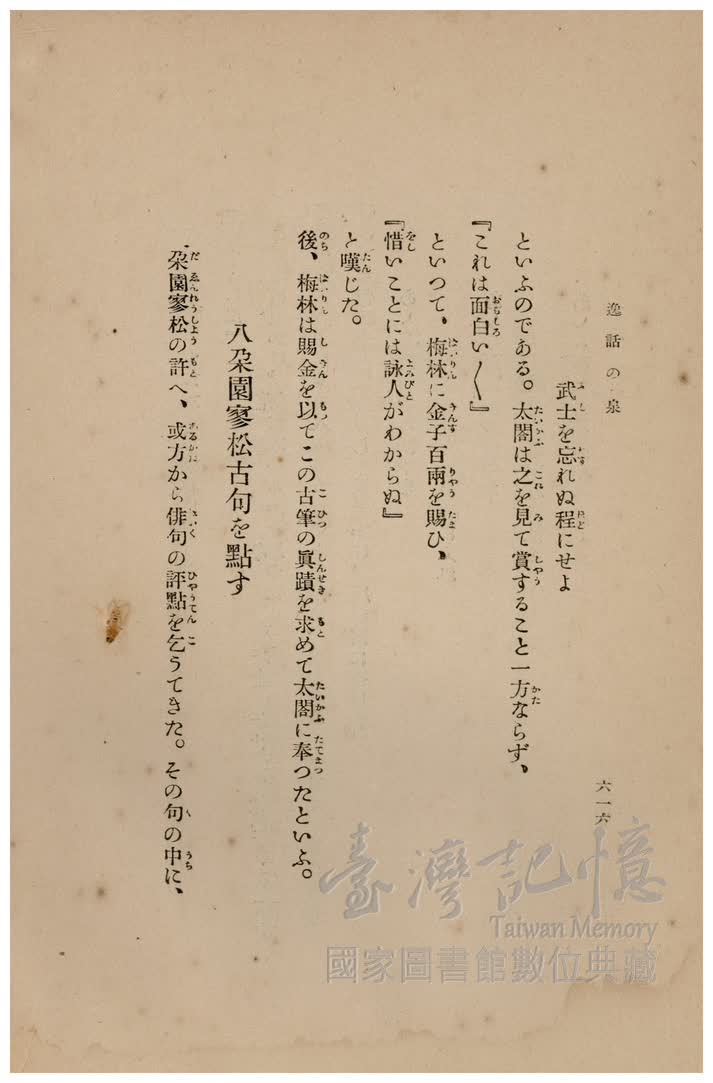 逸話の泉
六一六
武士を忘れぬ程にせよ
といふのである。太閤は之を見て賞すること一方ならず、
『これは面白い〱』
といつて、梅林に金子百兩を賜ひ、
『惜いことには詠人がわからぬ』
と嘆じた。
後、梅林は賜金を以てこの古筆の眞蹟を求めて太閤に奉つたといふ。
八朶園寥松古句を點す
朶園寥松の許へ、或方から俳句の評點を乞うてきた。その句の中に、
臺灣記憶
Taiwan Memory
國家圖書館數位典藏